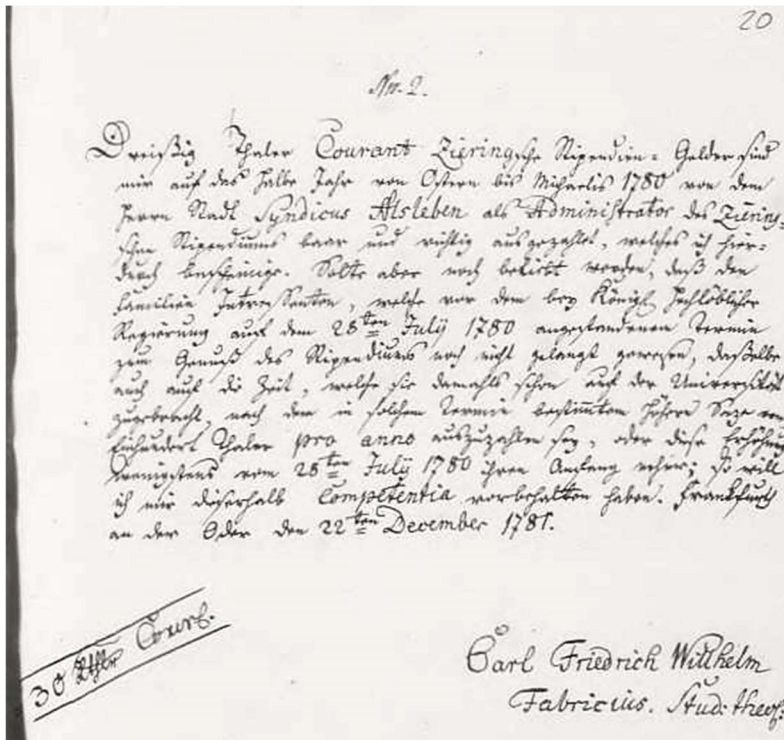 20
No. 2.
Dreißig Thaler Courant Zieringsche Stipendien-Gelder sind
mir auf das halbe Jahr von Ostern bis Michaelis 1780 von dem
Herrn Stadt Syndicus Alsleben als Administrator des Ziering-
schen Stipendiums baar und richtig ausgezahlet, welches ich hier-
durch bescheinige. Solte aber noch beliebt werden, daß den
Familien Interessenten, welche vor dem bey Königl. Hochlöblicher
Regierung auf dem 28ten July 1780 angestandenen Termin
zum Genuß des Stipendiums noch nicht gelangt gewesen, daßelbe
auch auf die Zeit, welche sie damahls schon auf der Universität
zugebracht, nach dem in solchem Termin bestimmten höhern Saze von
Einhundert Thaler pro anno auszuzahlen sey, oder diese Erhöhung
wenigstens vom 28ten July 1780 ihren Anfang nehme; so will
ich mir dieserhalb Competentia vorbehalten haben. Frankfurth
an der Oder den 22ten December 1781.
30 Rthlr Cour.
Carl Friedrich Willhelm
Fabricius. Stud: theol: